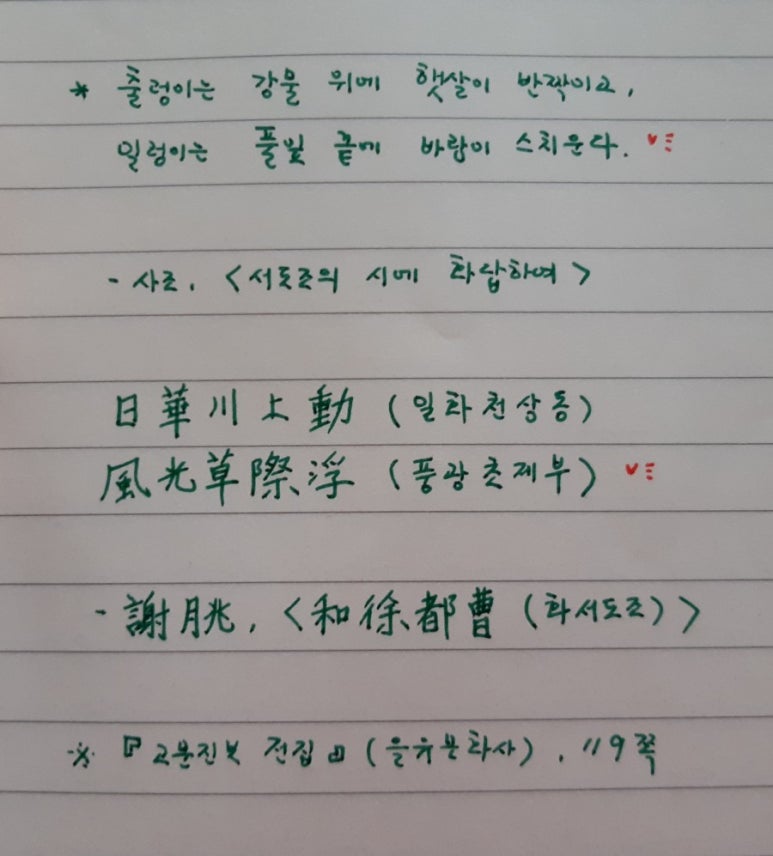 * 출렁이는 강물 위에 햇살이 반짝이고,
일렁이는 풀빛 끝에 바람이 스치운다.
- 사조, <서도조의 시에 화답하여>
日華川上動 (일화천상동)
風光草際浮 (풍광초제부)
- 謝朓, <和徐都曹 (화서도조)>
※ 『고문진보 전집』 (을유문화사), 119쪽